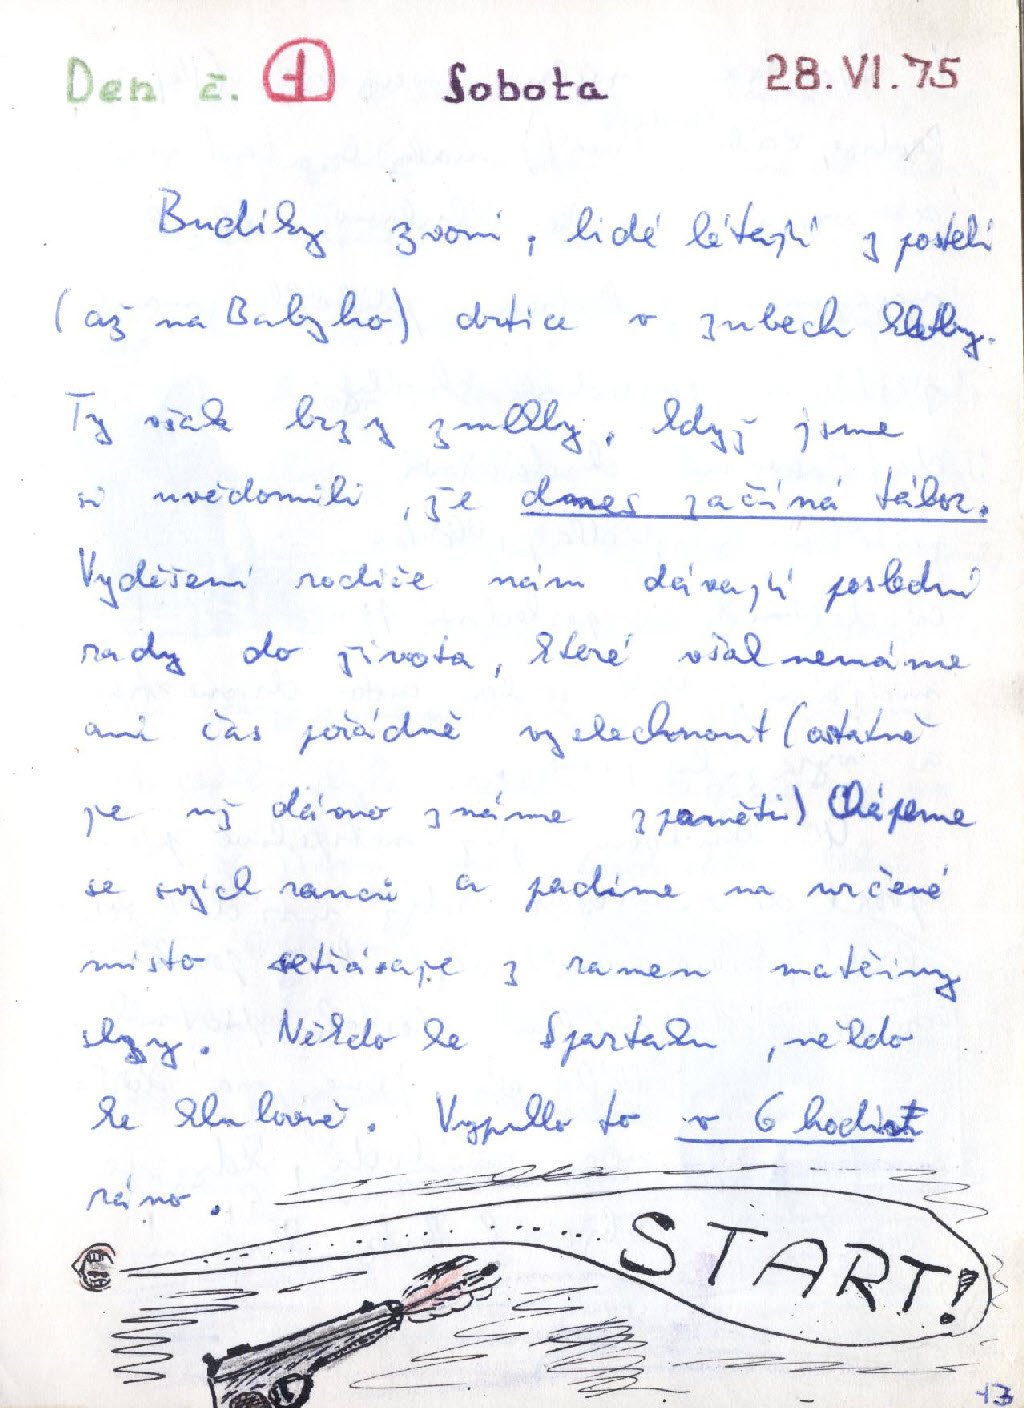 Den č. 1 Sobota 28.VI.75
Budíky zvoní, lidé létají z postelí
(až na Babyho) drtíce v zubech kletby.
Ty však brzy zmlkly, když jsme
si uvědomili, že dnes začíná tábor.
Vyděšení rodiče nám dávají poslední
rady do života, které však nemáme
ani čas pořádně vyslechnout (ostatně
je už dávno známe zpaměti) Chápeme
se svých ranců a pádíme na určené
místo setřásaje z ramen matčiny
slzy. Někdo ke Spartaku, někdo
ke klubovně. Vypuklo to v 6 hodin
ráno.
START!
13